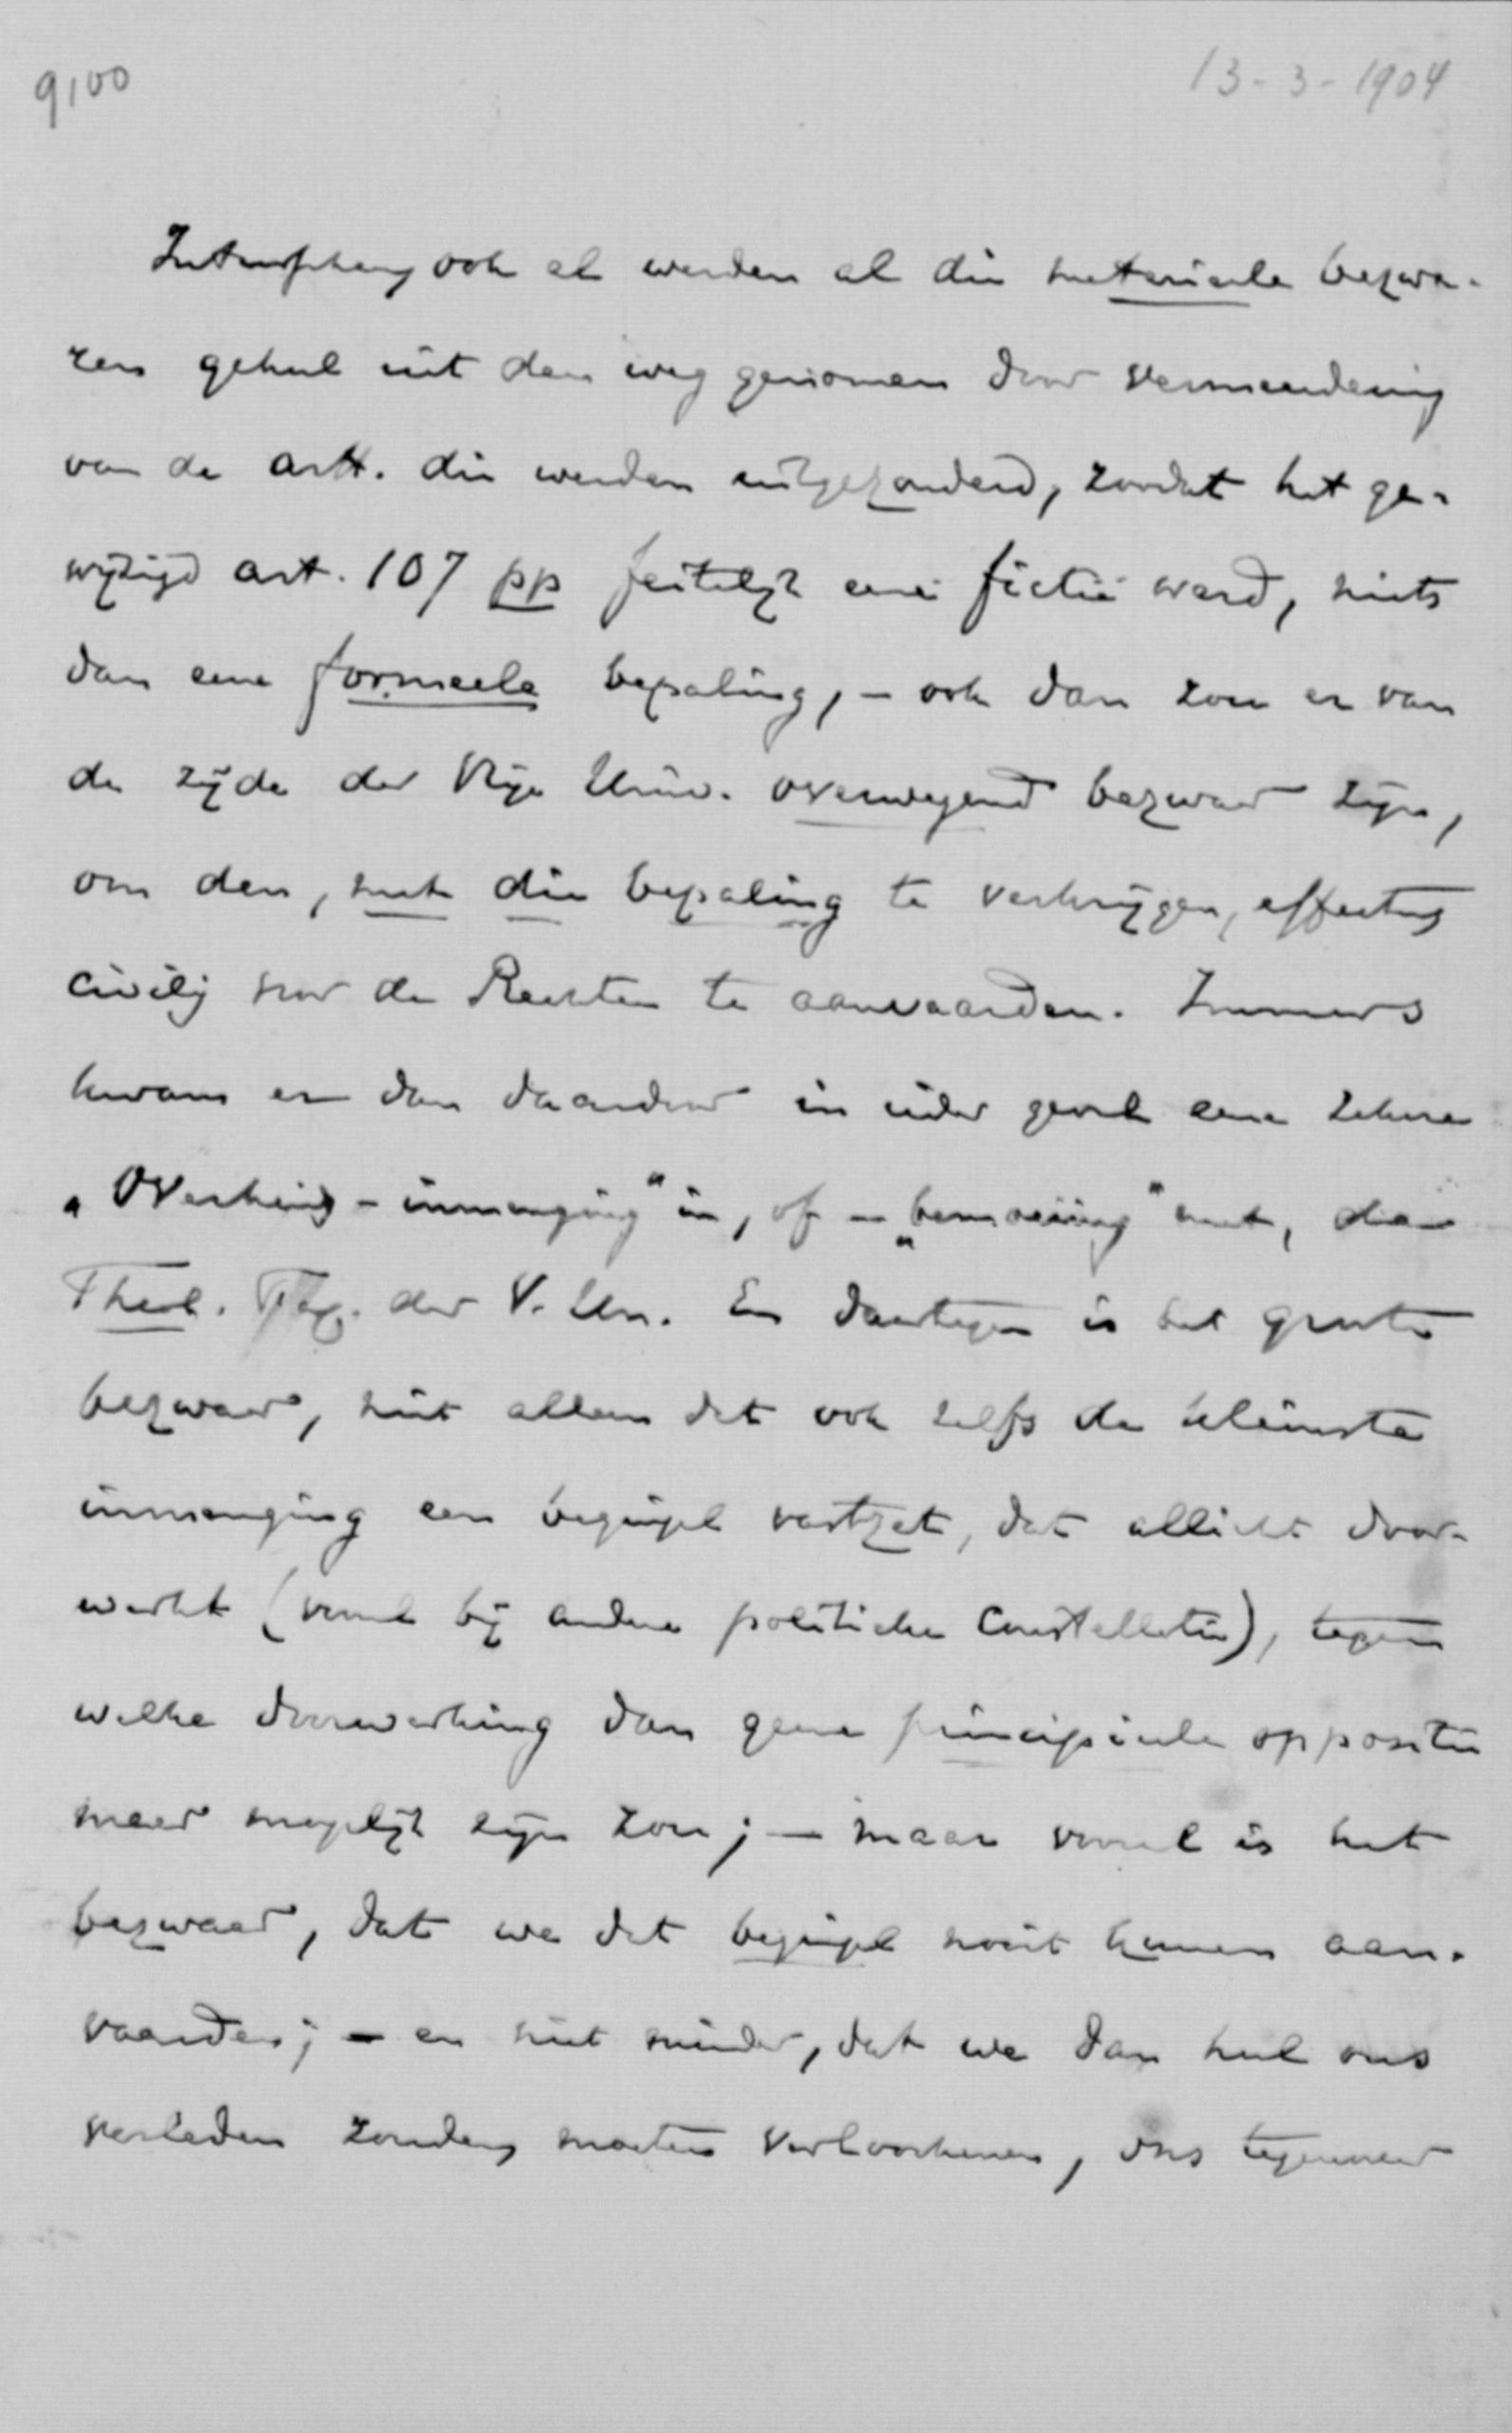 9100
13-3-1904
Intusschen, ook al werden al die materieele bezwa-
ren geheel uit den weg genomen door vermeerdering
van de artt. die werden uitgezonderd, zoodat het ge-
wijzigd art. 107 pp feitelijk eene fictie werd, niets
dan eene formeele bepaling, – ook dan zou er van
de zijde der Vrije Univ. overwegend bezwaar zijn,
om den, met die bepaling te verkrijgen, effectus
civilis voor de Rechten te aanvaarden. Immers
kwam er dan daardoor in ieder geval eene zekere
„Overheids-inmenging" in, of – „bemoeiing" met, de
Theol. Fac. der V. Un. En daartegen is het groote
bezwaar, niet alleen dat ook zelfs de kleinste
inmenging een beginsel vastzet, dat allicht door-
werkt (vooral bij andere politieke constellatie), tegen
welke doorwerking dan geene principieele oppositie
meer mogelijk zijn zou; – maar vooral is het
bezwaar, dat we dat beginsel nooit kunnen aan-
vaarden; – en niet minder, dat we dan heel ons
verleden zouden moeten verloochenen, ons tegenover